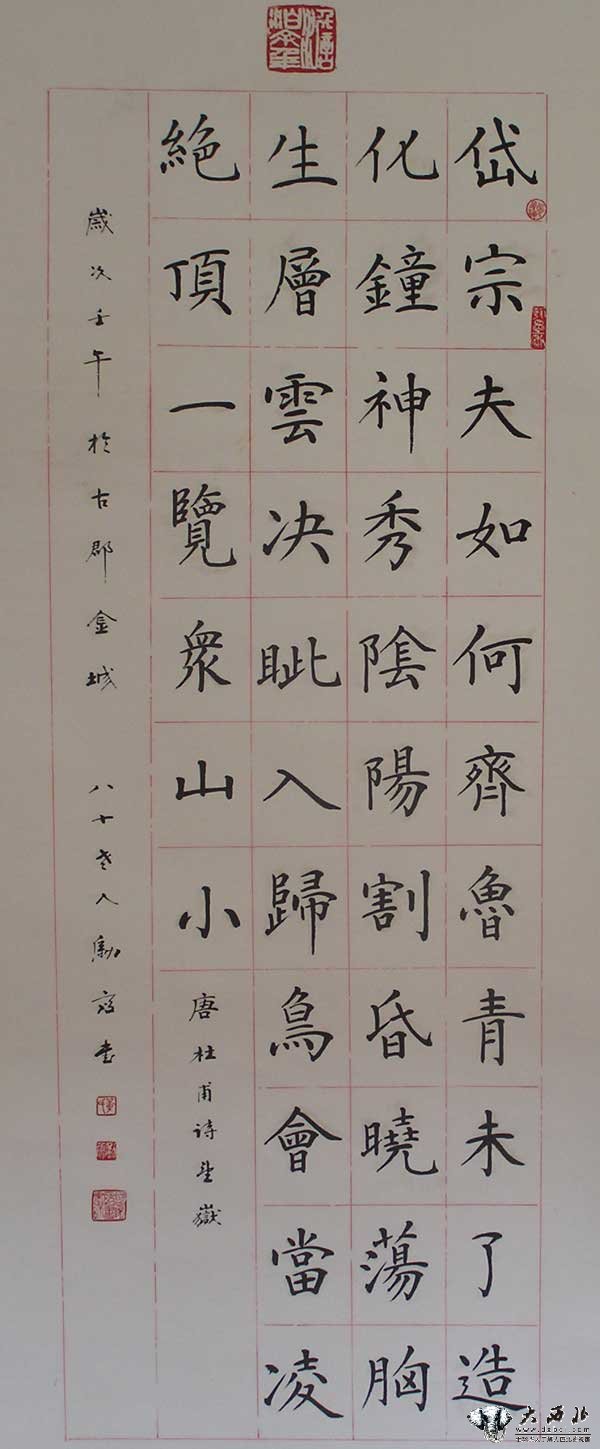 岱宗夫如何齊魯青未了造
化鐘神秀陰陽割昏曉蕩胸
生層雲决眦入歸鳥會當凌
絶頂一覽衆山小
唐杜甫诗望嶽
歲次壬午於古郡金城
八十老人
書
大西北